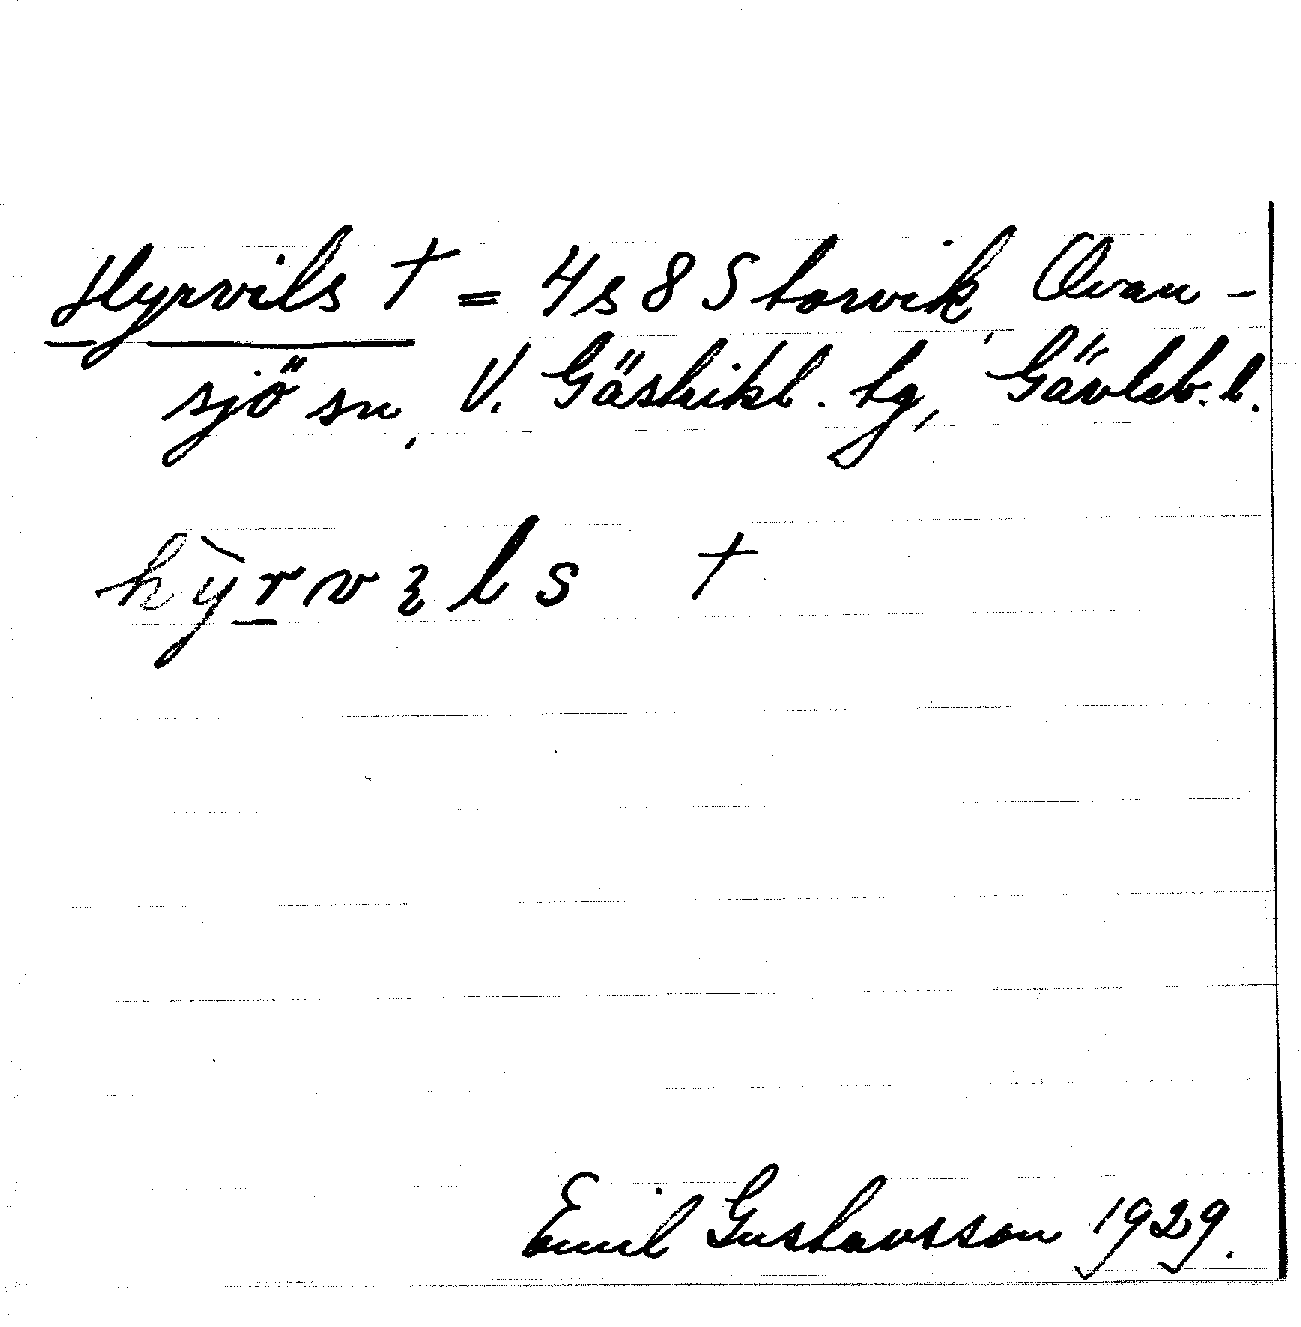 Hyrvils † = 4 s 8 Storvik, Ovan-
sjö sn, V. Gästrikl. tg, Gävleb. l.
hy̆rvɩls †
Emil Gustavsson 1929.